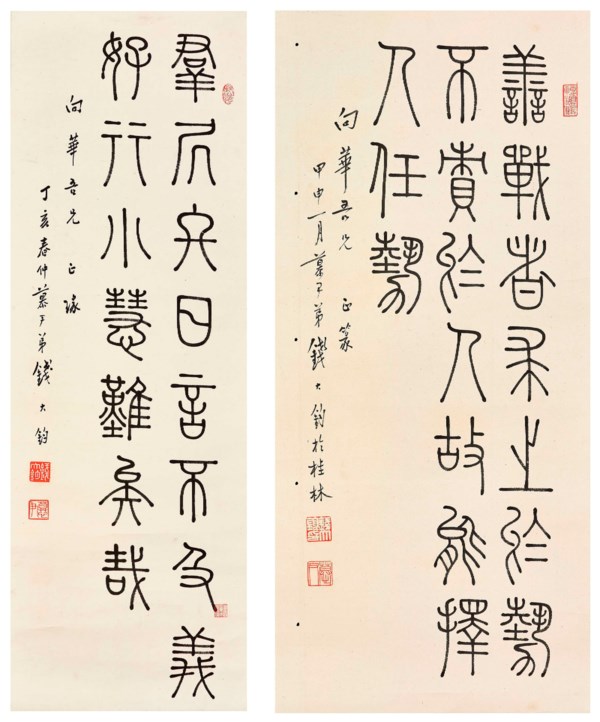 善戰者求之於勢
不責於人故能擇
人任勢
向華吾兄 正篆
甲申一月慕尹弟錢大鈞於桂林
羣居終日言不及義
好行小慧難矣哉
向華吾兄 正瑑
丁亥春仲慕尹弟錢大鈞